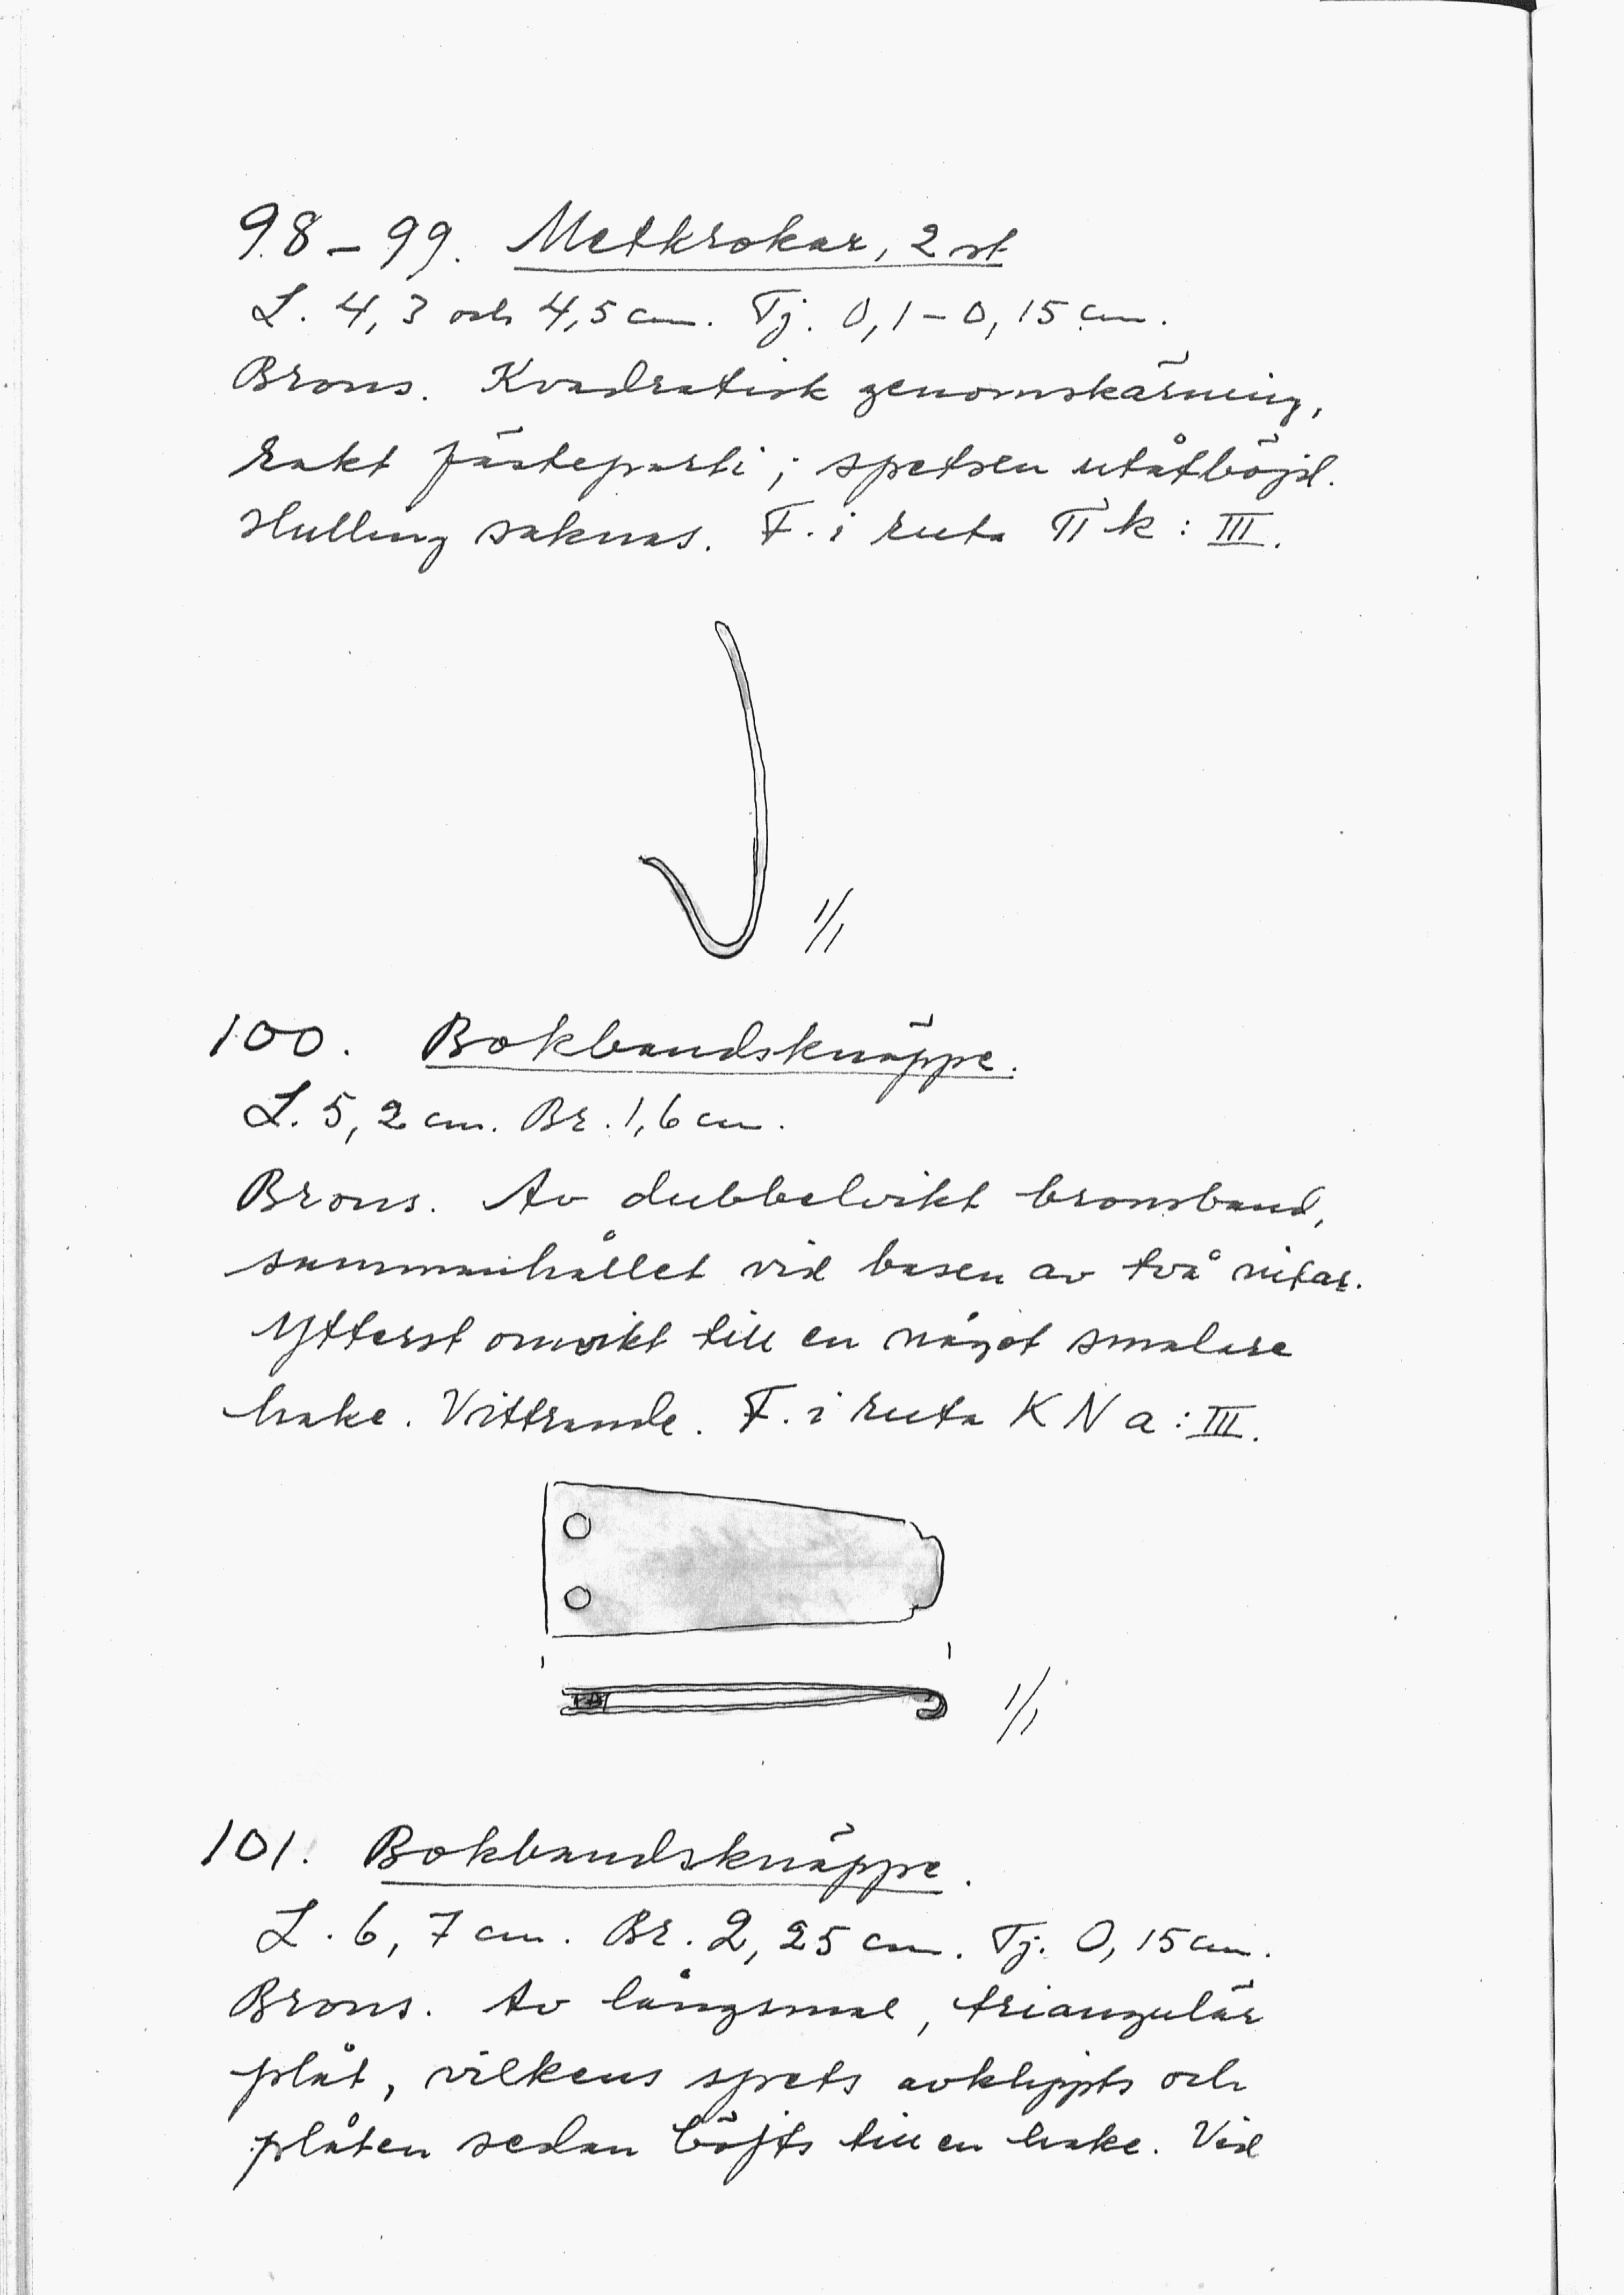 98-99. Metkrokar, 2 st
L. 4,3 och 4,5 cm. Tj. 0,1-0,15 cm.
Brons. Kvadratisk genomskärning,
rakt fästeparti; spetsen utåtböjd.
Hulling saknas. F. i ruta TT k: III.
1/1
100. Bokbandsknäppe.
L. 5,2 cm. Br. 1,6 cm.
Brons. Av dubbelvikt bronsband,
sammanhållet vid basen av två nitar.
Ytterst omvikt till en något smalare
hake. Vittrande. F. i ruta KN a: III.
1/1
101. Bokbandsknäppe.
L. 6,7 cm. Br. 2,25 cm. Tj. 0,15 cm.
Brons. Av långsmal, triangulär
plåt, vilkens spets avklippts och
plåten sedan böjts till en hake. Vid